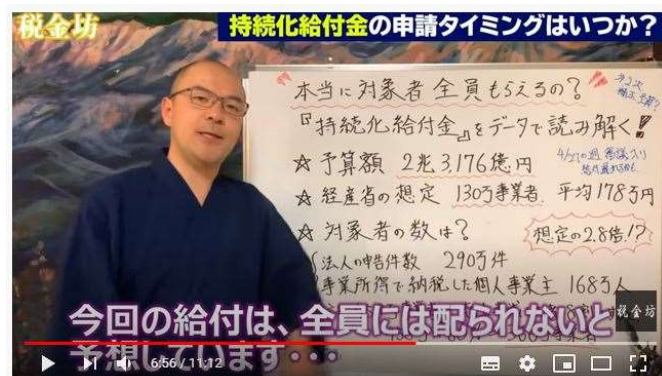 税金坊
持続化給付金の申請タイミングはいつか?
本当に対象者全員もらえるの?
『持続化給付金』をデータで読み解く!
☆予算額 2兆3,176億円
☆経産省の想定 130万事業者 平均178万円
☆対象者の数は?
想定の2.8倍!?
法人の申告件数 290万件
事業所得で納税した個人事業主 168万人
税金坊
今回の給付は、全員には配られないと
予想しています・・・
6:56/11:12